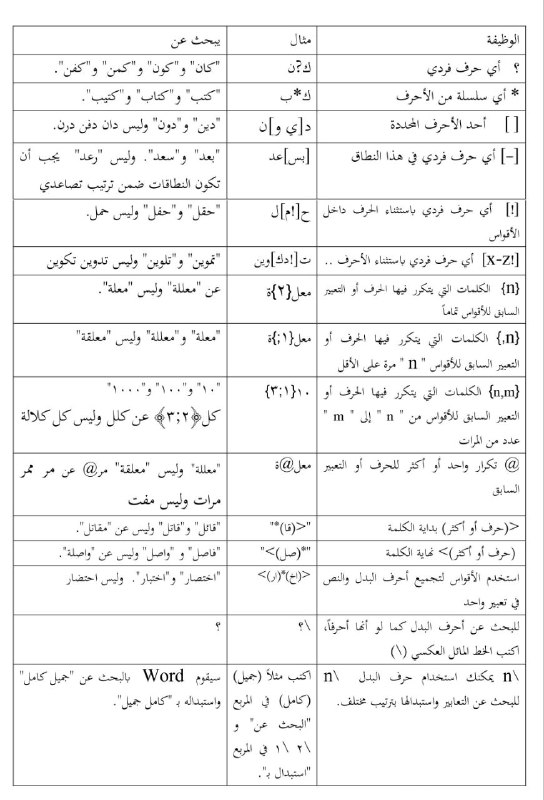 الوظيفة	مثال	يبحث عن
؟ أي حرف فردي	ك?ن	"كان" و"كون" و"كمن" و"كفن".
* أي سلسلة من الأحرف	ك*ب	"كتب" و"كتاب" و"كتيب".
[ ] أحد الأحرف المحددة	د[ي و]ن	"دين" و"دون" وليس دان دفن درن.
[–] أي حرف فردي في هذا النطاق	[بس]عد	"بعد" و"سعد". وليس "رعد" يجب أن
تكون النطاقات ضمن ترتيب تصاعدي
[!] أي حرف فردي باستثناء الحرف داخل	ح[!م]ل	"حقل" و"حفل" وليس حمل.
الأقواس
[!x-z] أي حرف فردي باستثناء الأحرف ..	ت[!دك]وين	"تموين" و"تلوين" وليس تدوين تكوين
{n} الكلمات التي يتكرر فيها الحرف أو التعبير	معل{٢}ة	عن "معللة" وليس "معلة".
السابق للأقواس تماماً
{n,} الكلمات التي يتكرر فيها الحرف أو	معل{١;}ة	"معلة" و"معللة" وليس "معلقة"
التعبير السابق للأقواس " n " مرة على الأقل
{n,m} الكلمات التي يتكرر فيها الحرف أو	١٠{١;٣}	"١٠" و"١٠٠" و"١٠٠٠"
التعبير السابق للأقواس من " n " إلى " m "	كل{٢;٣} عن كلل وليس كل كلالة
عدد من المرات
@ تكرار واحد أو أكثر للحرف أو التعبير	معل@ة	"معللة" وليس "معلقة" مر@ عن مر ممر
السابق	مرات وليس مفت
<(حرف أو أكثر) بداية الكلمة	"<(قا)*"	"قائل" و"قاتل" وليس عن "مقاتل".
(حرف أو أكثر)> نهاية الكلمة	"*(صل)>"	"فاصل" و "واصل" وليس عن "واصلة".
استخدم الأقواس لتجميع أحرف البدل والنص	<(اخ)*(ار)>	"اختصار" و"اختبار". وليس احتضار
في تعبير واحد
للبحث عن أحرف البدل كما لو أنها أحرفاً،	\؟	؟
اكتب الخط المائل العكسي (\)
\n يمكنك استخدام حرف البدل \n	اكتب مثلاً (جميل)	سيقوم Word بالبحث عن "جميل كامل"
للبحث عن التعابير واستبدالها بترتيب مختلف.	(كامل) في المربع	واستبداله بـ "كامل جميل".
"البحث عن" و
\٢ \١ في المربع
"استبدال بـ".